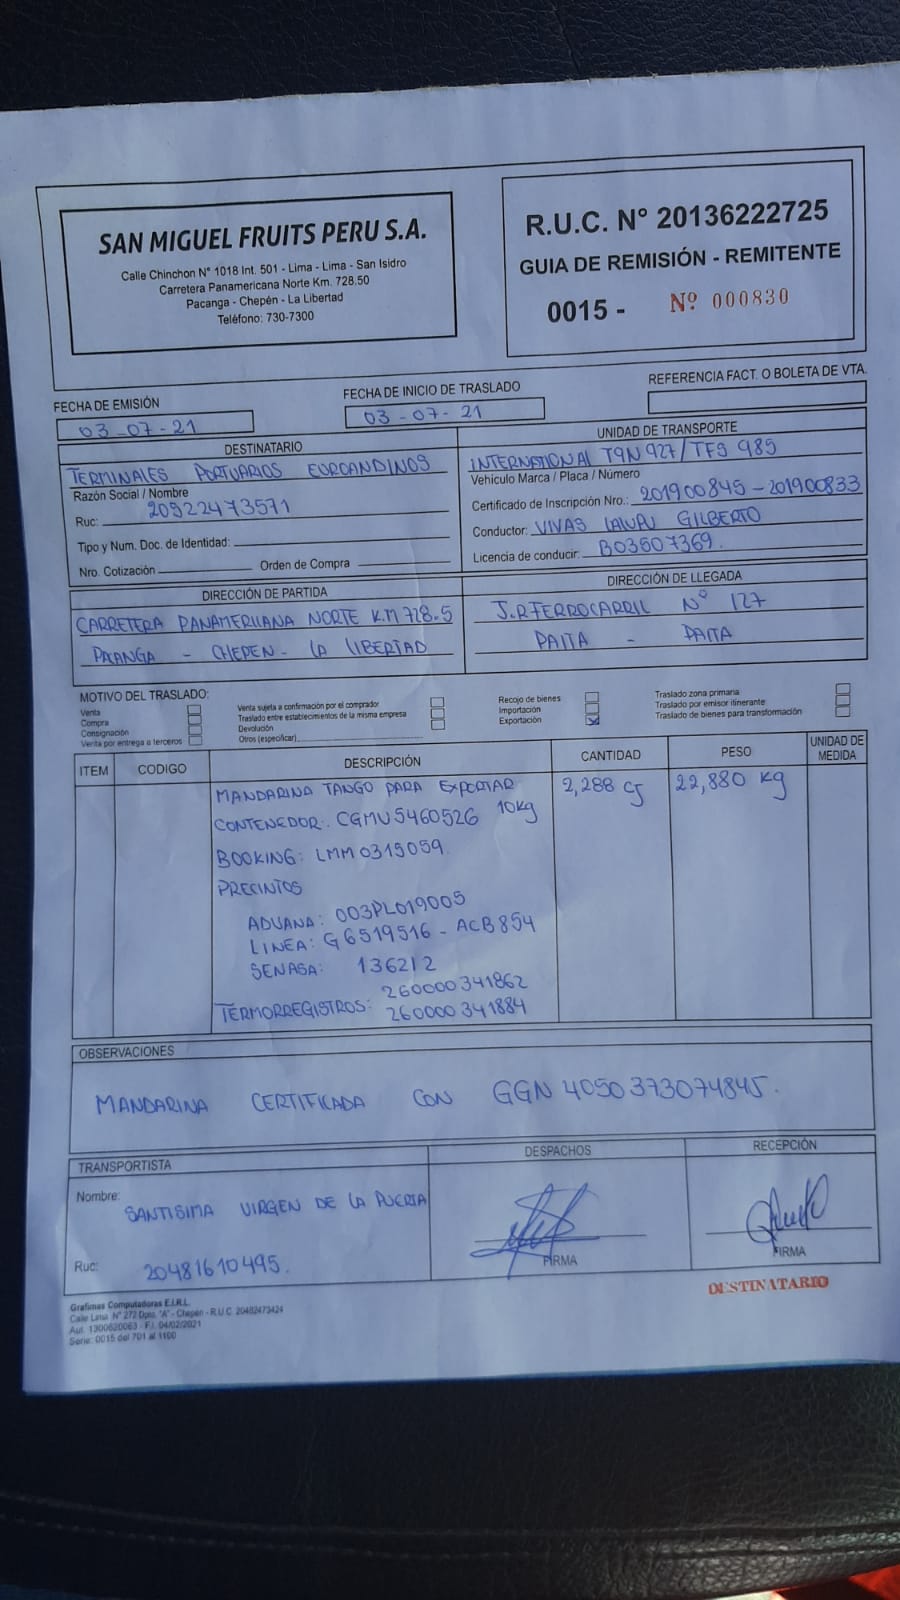 SAN MIGUEL FRUITS PERU S.A.
Calle Chinchon N° 1018 Int. 501 - Lima - Lima - San Isidro
Carretera Panamericana Norte Km. 728.50
Pacanga - Chepén - La Libertad
Teléfono: 730-7300
R.U.C. N° 20136222725
GUIA DE REMISIÓN - REMITENTE
0015 - Nº 000830
FECHA DE EMISIÓN
03-07-21
FECHA DE INICIO DE TRASLADO
03-07-21
REFERENCIA FACT. O BOLETA DE VTA.
DESTINATARIO
TERMINALES PORTUARIOS EUROANDINOS
Razón Social / Nombre
Ruc: 20522473571
Tipo y Num. Doc. de Identidad:
Nro. Cotización Orden de Compra
UNIDAD DE TRANSPORTE
INTERNATIONAL T9N 927/TFS 985
Vehículo Marca / Placa / Número
Certificado de Inscripción Nro.: 201900845-201900833
Conductor: VIVAS LALUPU GILBERTO
Licencia de conducir: B03507369.
DIRECCIÓN DE PARTIDA
CARRETERA PANAMERICANA NORTE K.M 728.5
PACANGA - CHEPEN - LA LIBERTAD
DIRECCIÓN DE LLEGADA
J.R FERROCARRIL N° 127
PAITA - PAITA
MOTIVO DEL TRASLADO:
Venta
Compra
Consignación
Venta por entrega a terceros
Venta sujeta a confirmación por el comprador
Traslado entre establecimientos de la misma empresa
Devolución
Otros (especificar)
Recojo de bienes
Importación
Exportación
Traslado zona primaria
Traslado por emisor itinerante
Traslado de bienes para transformación
ITEM CODIGO DESCRIPCIÓN CANTIDAD PESO UNIDAD DE MEDIDA
MANDARINA TANGO PARA EXPORTAR 2,288 cj 22,880 kg
CONTENEDOR: CGMU5460526 10kg
BOOKING: LMM0315059.
PRECINTOS
ADUANA: 003PL019005
LINEA: G6519516 - ACB854
SENASA: 136212
260000341862
TERMORREGISTROS: 260000341884
OBSERVACIONES
MANDARINA CERTIFICADA CON GGN 4050373074845.
TRANSPORTISTA
Nombre: SANTISIMA VIRGEN DE LA PUERTA
Ruc: 20481610495.
DESPACHOS
FIRMA
RECEPCIÓN
FIRMA
DESTINATARIO
Grafimas Computadoras E.I.R.L.
Calle Lima N° 272 Dpto. "A" - Chepén - R.U.C. 20482473424
Aut. 1300620063 - F.I. 04/02/2021
Serie: 0015 del 701 al 1100